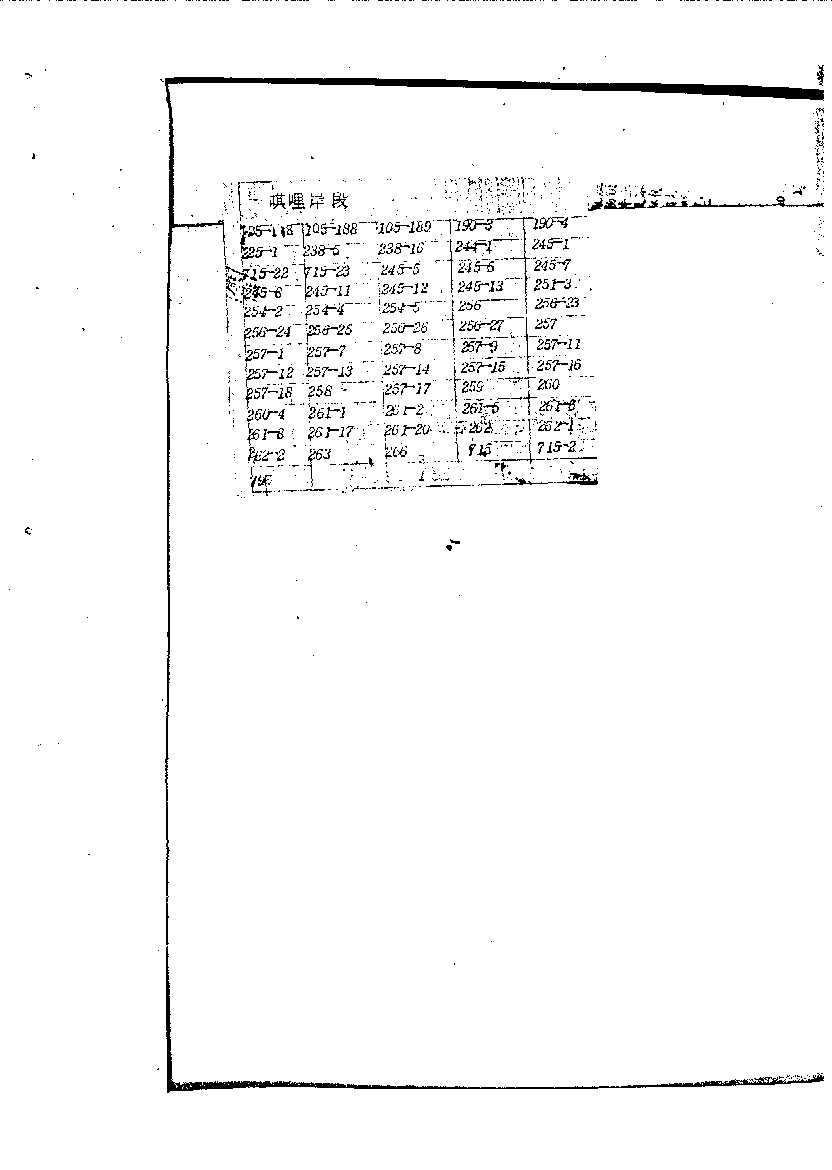 唭哩岸段
105-188 105-189 190-3 190-4
225-1 238-5 238-16 244-1 245-1
715-22 715-23 245-5 245-6 245-7
245-11 245-12 245-13 251-3
254-2 254-4 254-5 256 256-23
256-24 256-25 256-26 256-27 257
257-1 257-7 257-8 257-9 257-11
257-12 257-13 257-14 257-15 257-16
257-18 258 257-17 259 260
260-4 261-1 261-2 261-5 261-6
261-8 261-17 261-20 262 262-1
262-2 263 266 715 715-2